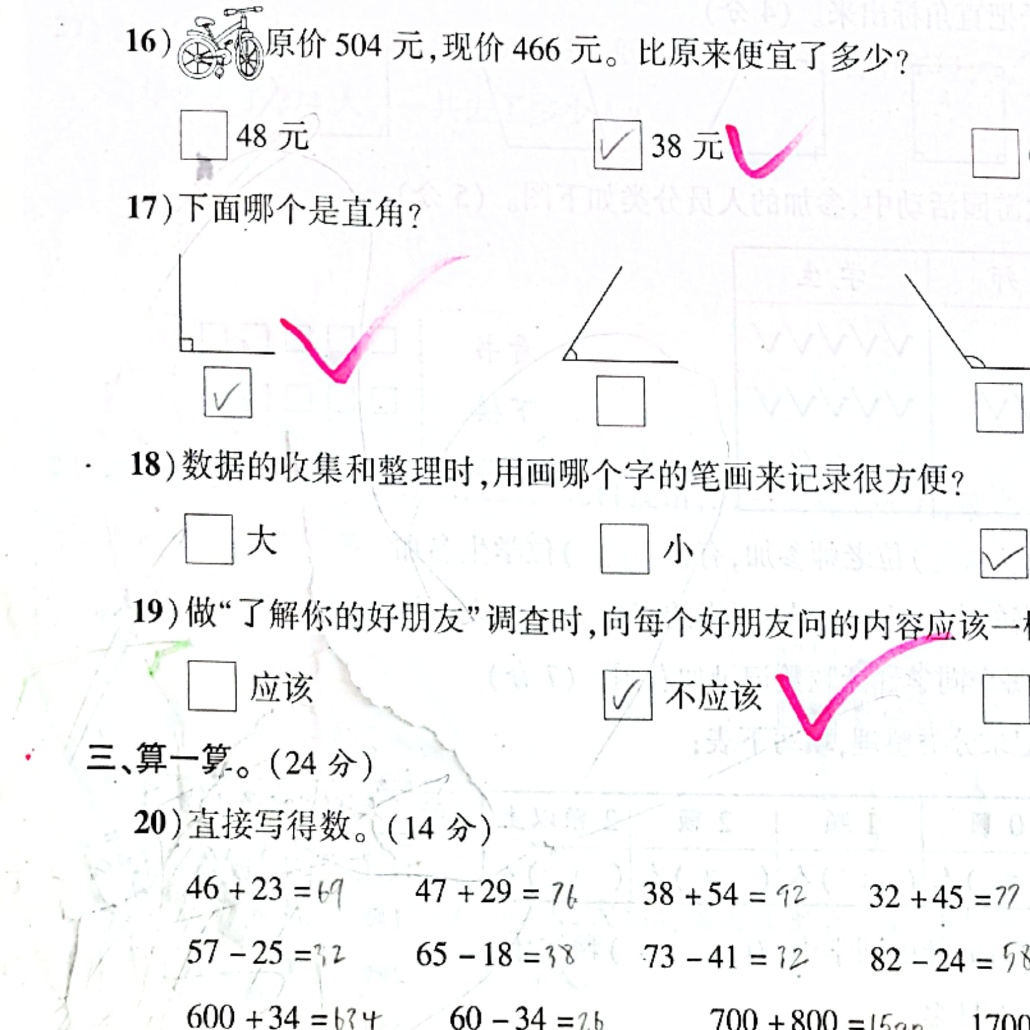 16) 原价 504 元,现价 466 元。比原来便宜了多少?
48 元 38 元
17)下面哪个是直角?
18)数据的收集和整理时,用画哪个字的笔画来记录很方便?
大 小
19)做“了解你的好朋友”调查时,向每个好朋友问的内容应该一
应该 不应该
三、算一算。(24 分)
20)直接写得数。(14 分)
46 + 23 = 69 47 + 29 = 76 38 + 54 = 92 32 + 45 = 77
57 - 25 = 32 65 - 18 = 38 73 - 41 = 32 82 - 24 = 58
600 + 34 = 634 60 - 34 = 26 700 + 800 = 1500 1700